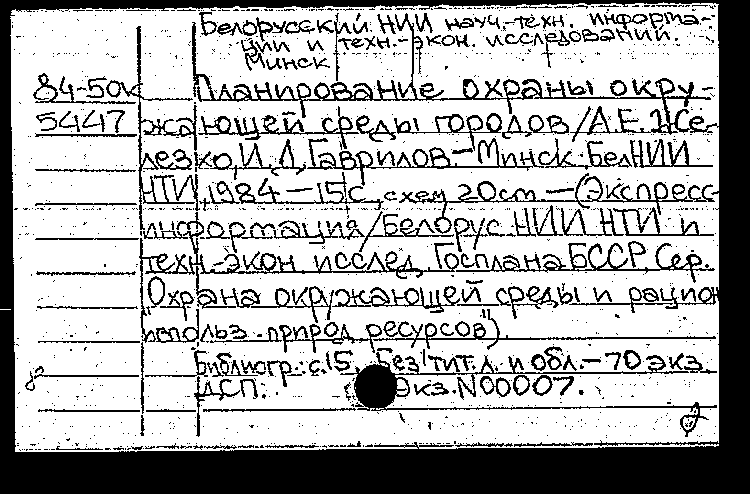 Белорусский НИИ науч.-техн. информа-
ции и техн.-экон. исследований.
Минск
84-50к Планирование охраны окру-
5447 жающей среды городов/А.Е. Же-
лезко, И.Д. Гаврилов.-Минск: БелНИИ
НТИ, 1984 — 15 с., схем 20 см. — (Экспресс-
информация/Белорус. НИИ НТИ и
техн.-экон исслед. Госплана БССР, Сер.
"Охрана окружающей среды и рацион
использ. природ ресурсов").
Библиогр.: с. 15. Без тит. л. и обл. — 70 экз.
ДСП. Экз. N00007.